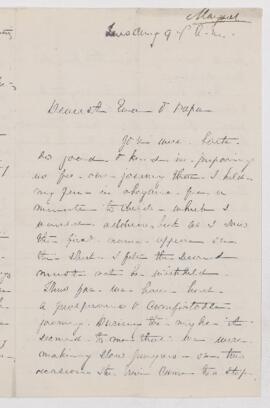 Margaret
Tuesday 9
Dearest Mama & Papa
You were both
so good & kind in preparing
us for our journey that I held
my pen in abeyance for a
minute to decide which I
would address, but as I saw
the first name appear on
the sheet I felt the second
must not be omitted.
Thus far we have had
a prosperous & comfortable
journey. During the night it
seemed to me that we were
making slow progress on two
occasions the train came to a stop